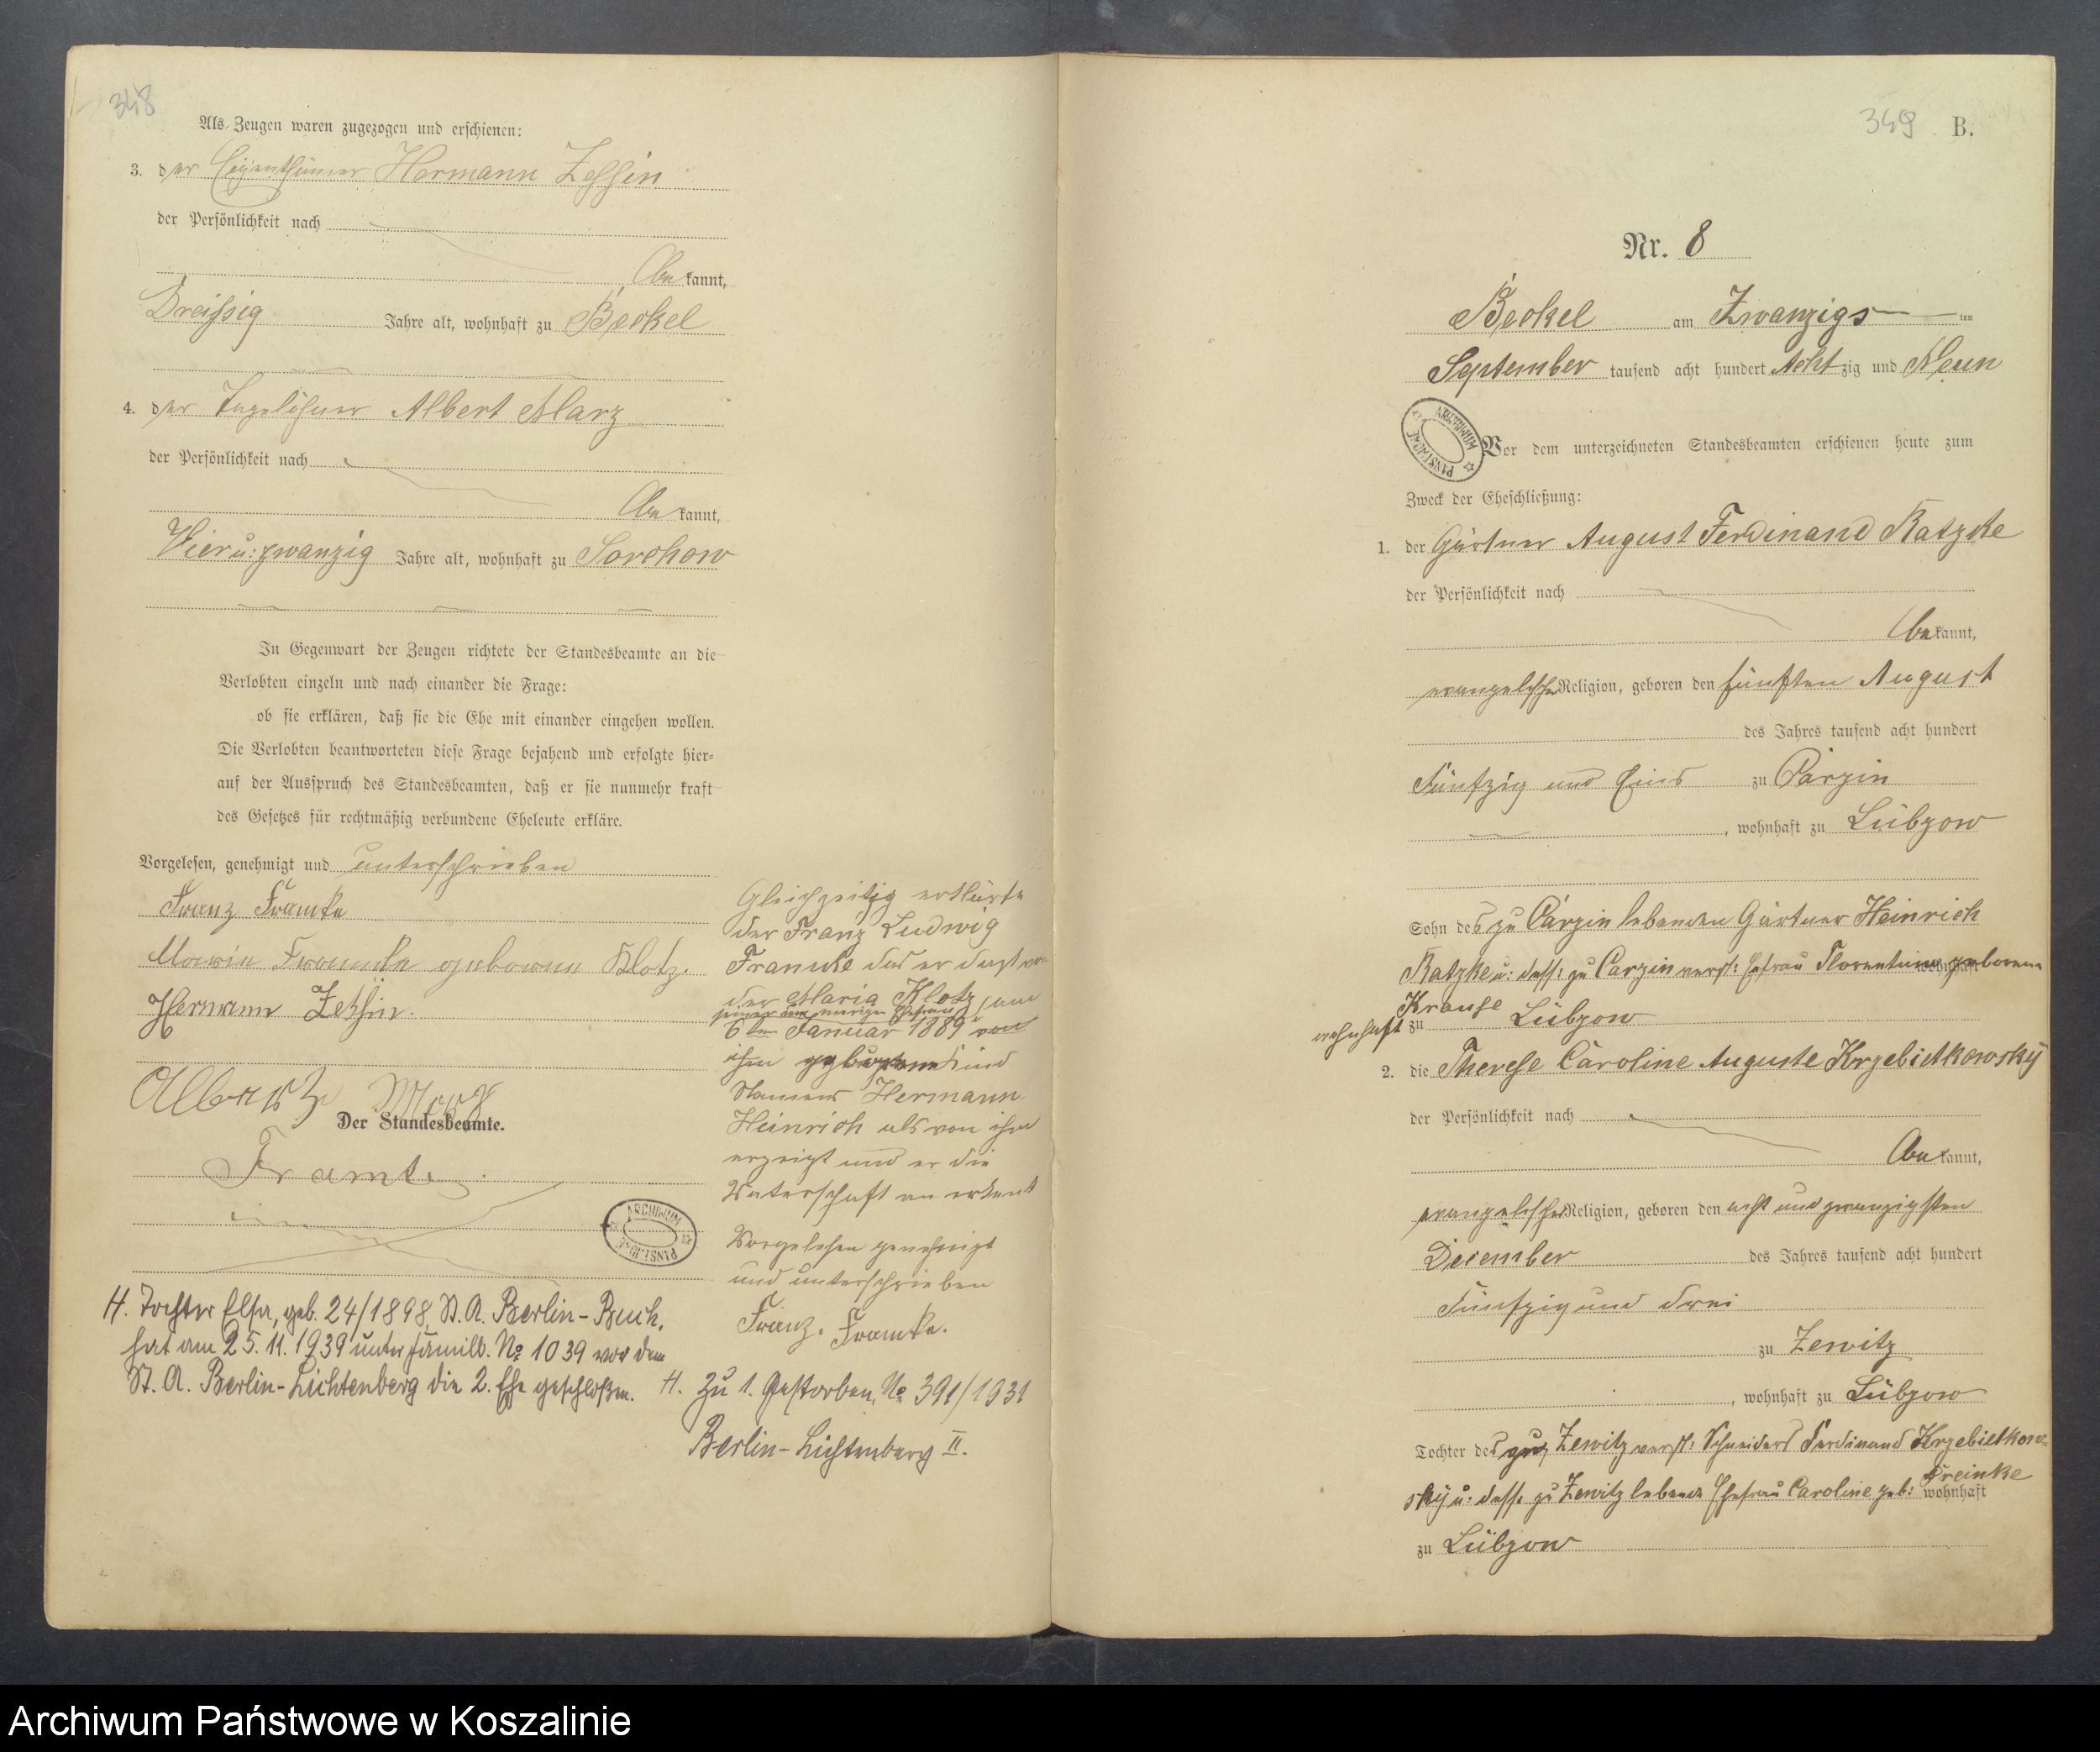 348
Als Zeugen waren zugezogen und erschienen:
3. der Eigenthümer Hermann Zessin
der Persönlichkeit nach
be kannt,
Dreißig Jahre alt, wohnhaft zu Beckel
4. der Tagelöhner Albert Marz
der Persönlichkeit nach
be kannt,
Vier u: zwanzig Jahre alt, wohnhaft zu Sorchow
In Gegenwart der Zeugen richtete der Standesbeamte an die
Verlobten einzeln und nach einander die Frage:
ob sie erklären, daß sie die Ehe mit einander eingehen wollen.
Die Verlobten beantworteten diese Frage bejahend und erfolgte hier-
auf der Ausspruch des Standesbeamten, daß er sie nunmehr kraft
des Gesetzes für rechtmäßig verbundene Eheleute erkläre.
Vorgelesen, genehmigt und unterschrieben
Franz Framke
Maria Framke geborene Klotz.
Hermann Zessin.
Albert Marz
Der Standesbeamte.
Framke
ARCHIWUM PANSTWOWE
H. Tochter Elsa, geb. 24/1898, St. A. Berlin-Buch,
hat am 25. 11. 1939 unter Familb. No 1039 vor dem
St. A. Berlin-Lichtenberg die 2. Ehe geschloßen.
Gleichzeitig erklärte
der Franz Ludwig
Framke das er das von
der Maria Klotz
seiner nun merigen Ehefrau am
6ten Januar 1889 von
ihm geborene Kind
Namens Hermann
Heinrich als von ihm
erzeigt und er die
Vaterschaft an erkent
Vorgelesen genehmigt
und unterschrieben
Franz. Framke.
H. Zu 1. Gestorben, No 391/1931
Berlin-Lichtenberg II.
349 B.
Nr. 8
Beckel am Zwanzigs ten
September tausend acht hundert Acht zig und Neun
ARCHIWUM PANSTWOWE
Vor dem unterzeichneten Standesbeamten erschienen heute zum
Zweck der Eheschließung:
1. der Gärtner August Ferdinand Ratzke
der Persönlichkeit nach
be kannt,
evangelischer Religion, geboren den fünften August
des Jahres tausend acht hundert
Fünfzig und Eins zu Carzin
, wohnhaft zu Lübzow
Sohn des zu Carzin lebenden Gärtner Heinrich
Ratzke u: dess: zu Carzin verst: Ehefrau Florentine geborene wohnhaft
Krause
wohnhaft zu Lübzow
2. die Therese Caroline Auguste Krzebietkowsky
der Persönlichkeit nach
be kannt,
evangelischer Religion, geboren den acht und zwanzigsten
December des Jahres tausend acht hundert
Fünfzig und drei
zu Zewitz
, wohnhaft zu Lübzow
Tochter des zu Zewitz verst: Schneiders Ferdinand Krzebietkow-
sky u: dess: zu Zewitz lebende Ehefrau Caroline geb: Treinke wohnhaft
zu Lübzow
Archiwum Państwowe w Koszalinie